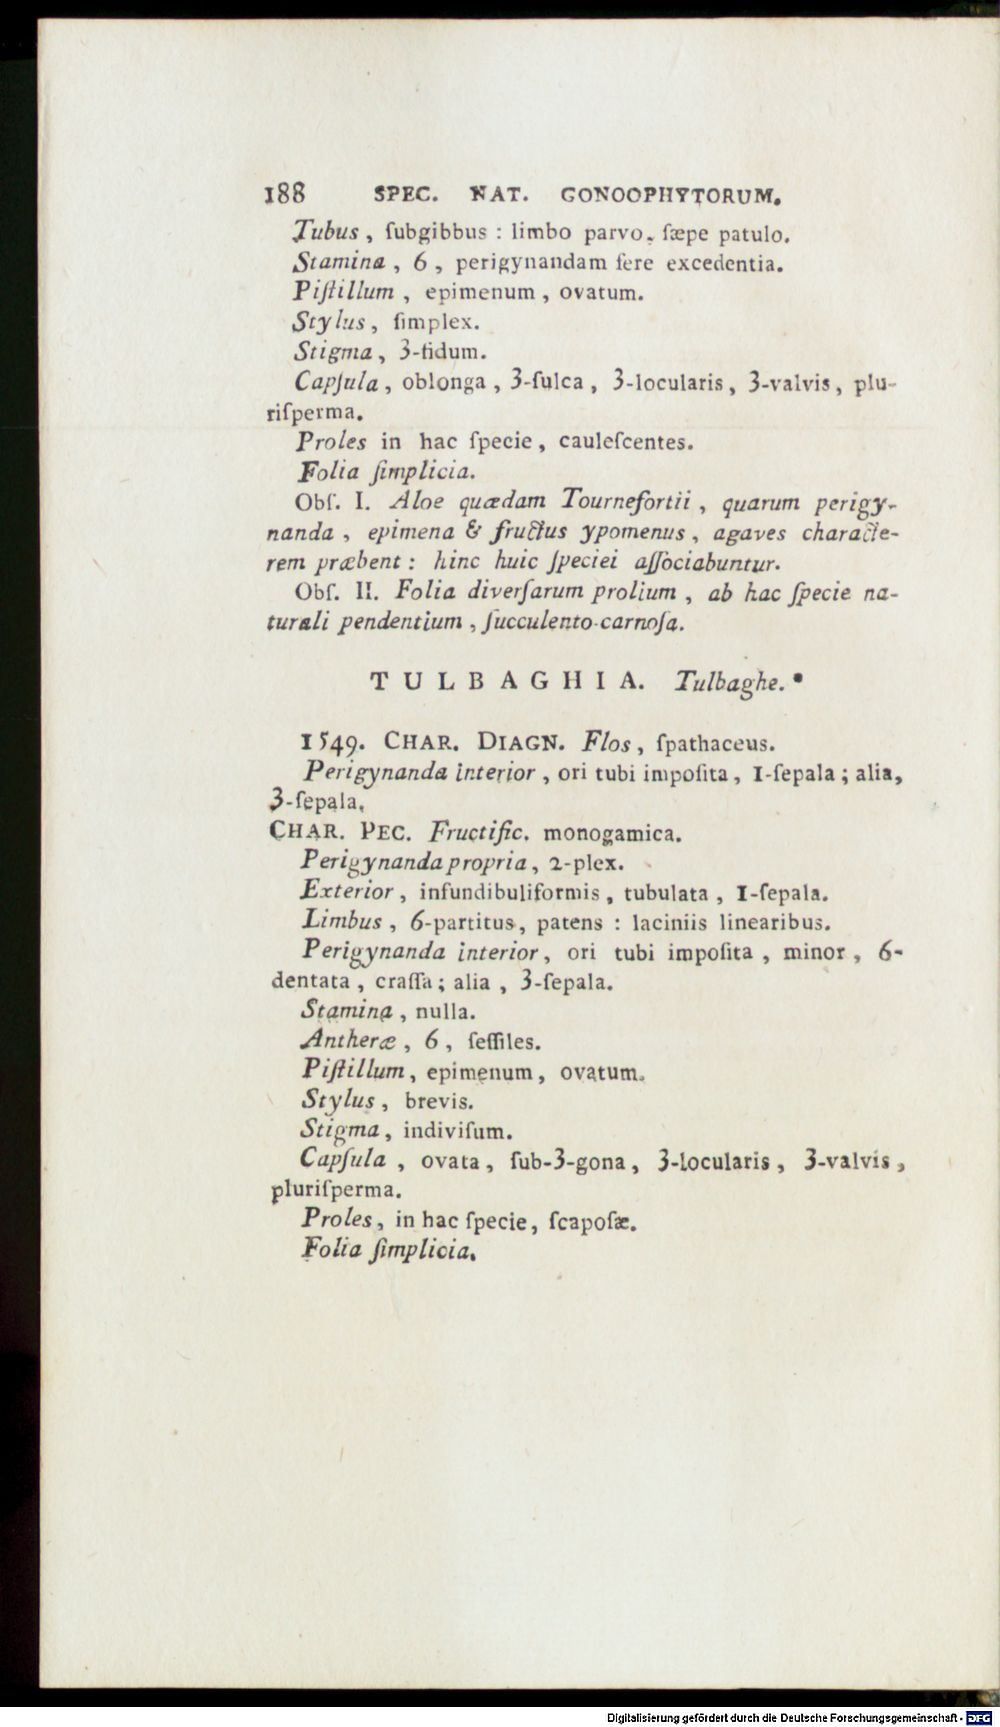 188 SPEC. NAT. GONOOPHYTORUM.
Tubus , ſubgibbus : limbo parvo, ſæpe patulo.
Stamina , 6 , perigynandam fere excedentia.
Piſtillum , epimenum , ovatum.
Stylus , ſimplex.
Stigma , 3-fidum.
Capſula , oblonga , 3-ſulca , 3-locularis , 3-valvis , plu-
riſperma.
Proles in hac ſpecie , cauleſcentes.
Folia ſimplicia.
Obſ. I. Aloe quædam Tournefortii , quarum perigy-
nanda , epimena & fructus ypomenus , agaves characte-
rem præbent : hinc huic ſpeciei aſſociabuntur.
Obſ. II. Folia diverſarum prolium , ab hac ſpecie na-
turali pendentium , ſucculento-carnoſa.
TULBAGHIA. Tulbaghe. *
1549. CHAR. DIAGN. Flos , ſpathaceus.
Perigynanda interior , ori tubi impoſita , 1-ſepala ; alia,
3-ſepala.
CHAR. PEC. Fructific. monogamica.
Perigynanda propria , 2-plex.
Exterior , infundibuliformis , tubulata , 1-ſepala.
Limbus , 6-partitus , patens : laciniis linearibus.
Perigynanda interior , ori tubi impoſita , minor , 6-
dentata , craſſa ; alia , 3-ſepala.
Stamina , nulla.
Antheræ , 6 , ſeſſiles.
Piſtillum , epimenum , ovatum.
Stylus , brevis.
Stigma , indiviſum.
Capſula , ovata , ſub-3-gona , 3-locularis , 3-valvis ,
pluriſperma.
Proles , in hac ſpecie , ſcapoſæ.
Folia ſimplicia.
Digitalisierung gefördert durch die Deutsche Forschungsgemeinschaft - DFG